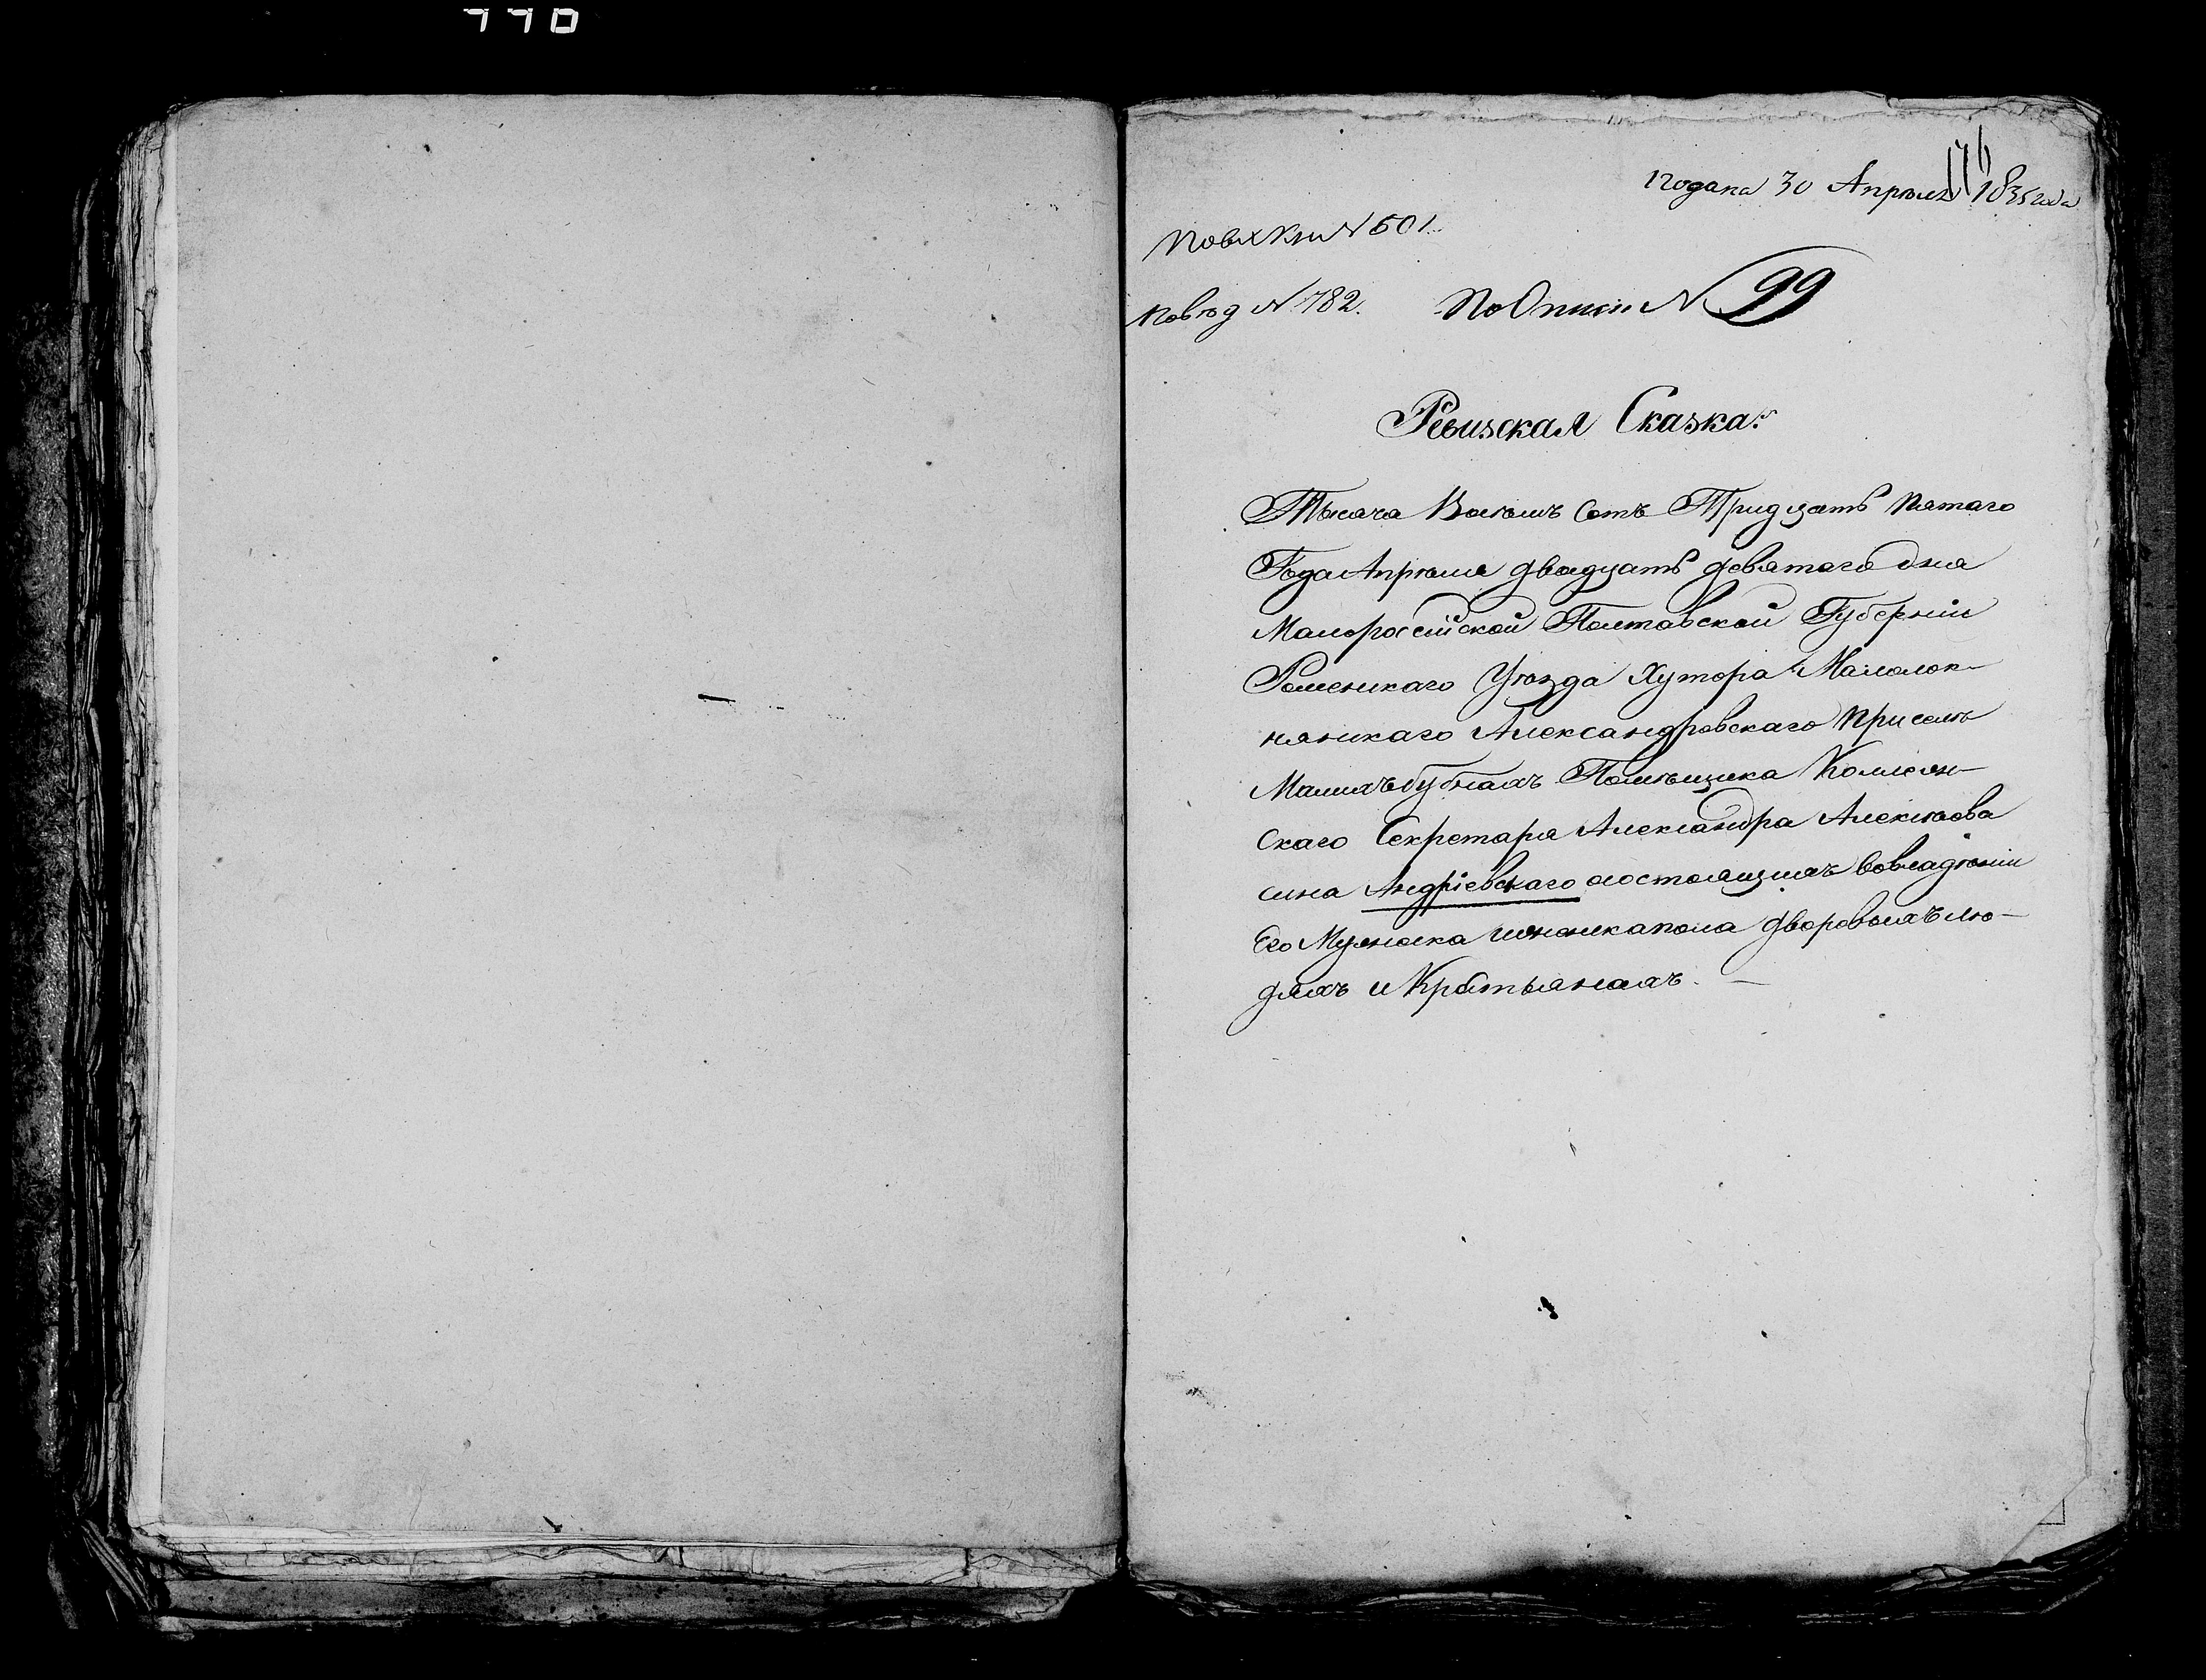 770
176
Подана 30 Апреля 1835 года
По вх Кни N 501.
По вѣд N 782.
По Описи N 99
Ревизская Сказка:
Тысяча Восемъ Сотъ Тридцать Пятаго
Года Апрѣля двадцать девятаго дня
Малоросссійской Полтавской Губерніи
Роменскаго Уѣзда Хутора
Александровскаго при селѣ
Малыхъ Бубнахъ Помѣщика Коллежс-
скаго Секретаря Александра Алексѣева
сына Андріевскаго состоящихъ во владѣніи
Его Мужеска и женска пола дворовыхъ лю-
дяхъ и Крѣстьянахъ. —